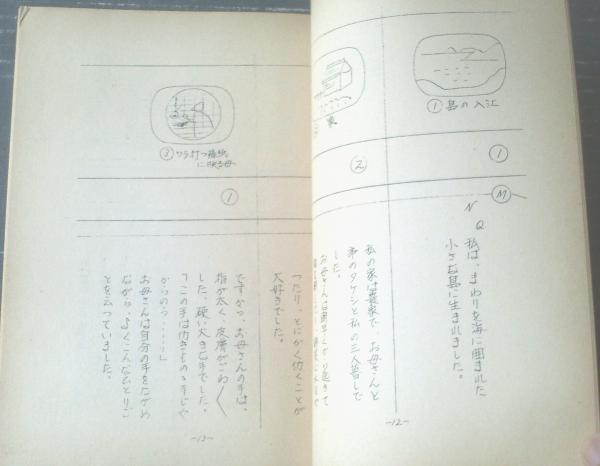 ①島の入江
②
家
①
M
N
Q
私は、まわりを海に囲まれた
小さな島に生まれました。
私の家は農家で、お母さんと
弟のタケシと私の三人暮しで
した。
お母さんは朝早くから起きて
-12-
③ワラ打つ
①
ったり、とにかく仂くことが
大好きでした。
ですから、お母さんの手は、
指が太く、皮膚がごわ〱
した、硬い大きな手でした。
「この手は仂きものゝ手じゃ
からのう‥‥」
お母さんは自分の手をながめ
ながら、よくこんなひとりご
とを云っていました。
-13-